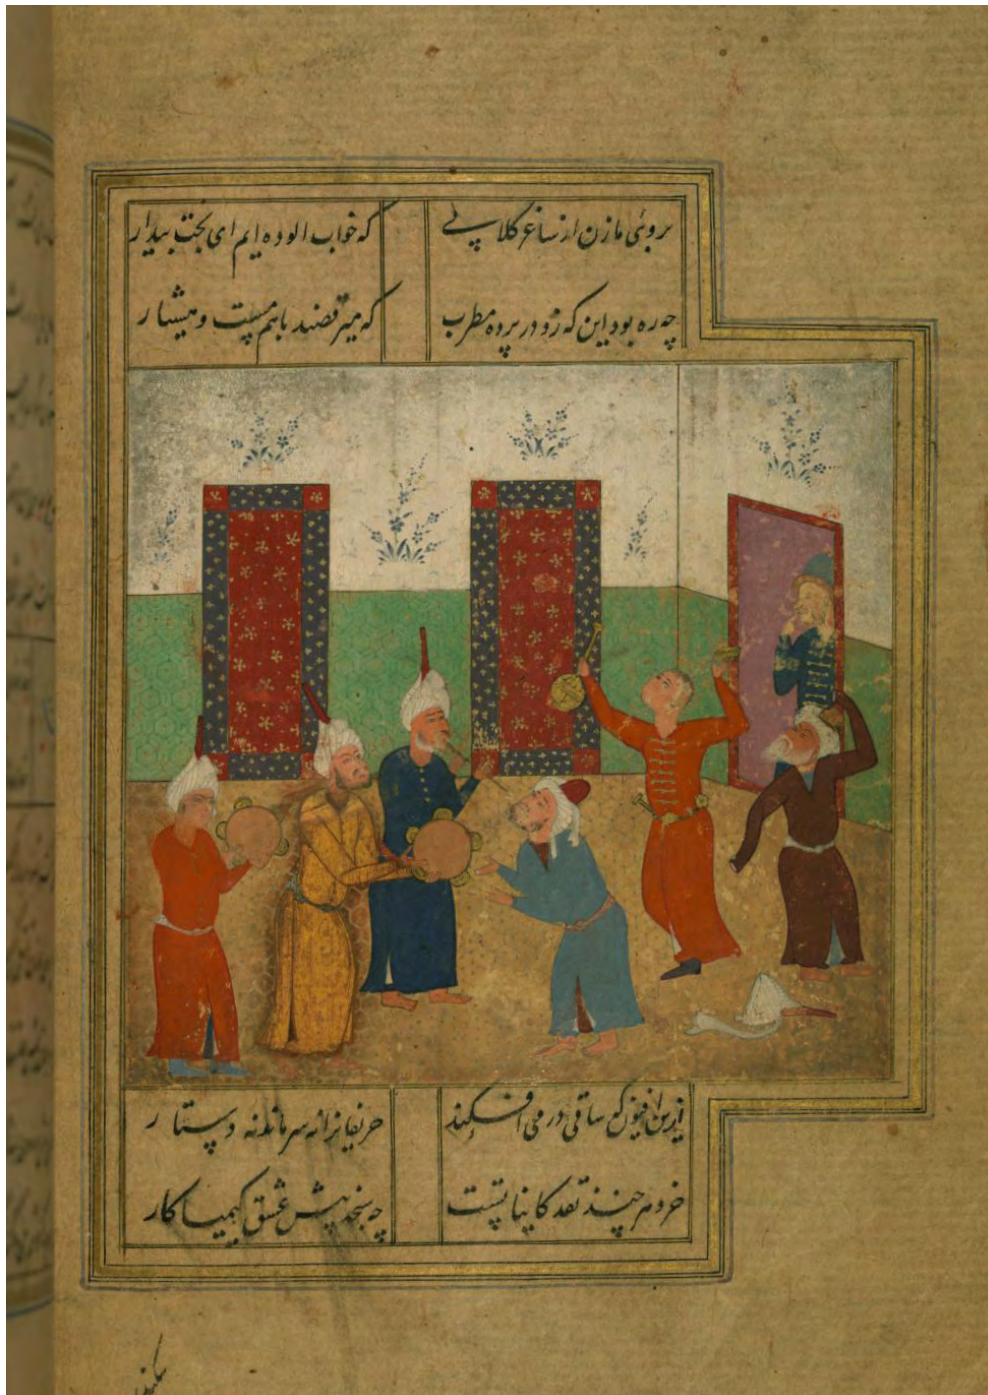 بروئی ما زن از ساغر کلابی که خواب الوده ایم ای بخت بیدار
چه ره بود این که زد در پرده مطرب که میرقصند باهم مست و هشیار
ازین افیون که ساقی در می افکند حریفانرا نه سر ماند نه دستار
خرد هر چند نقد کایناتست چه سنجد پیش عشق کیمیا کار